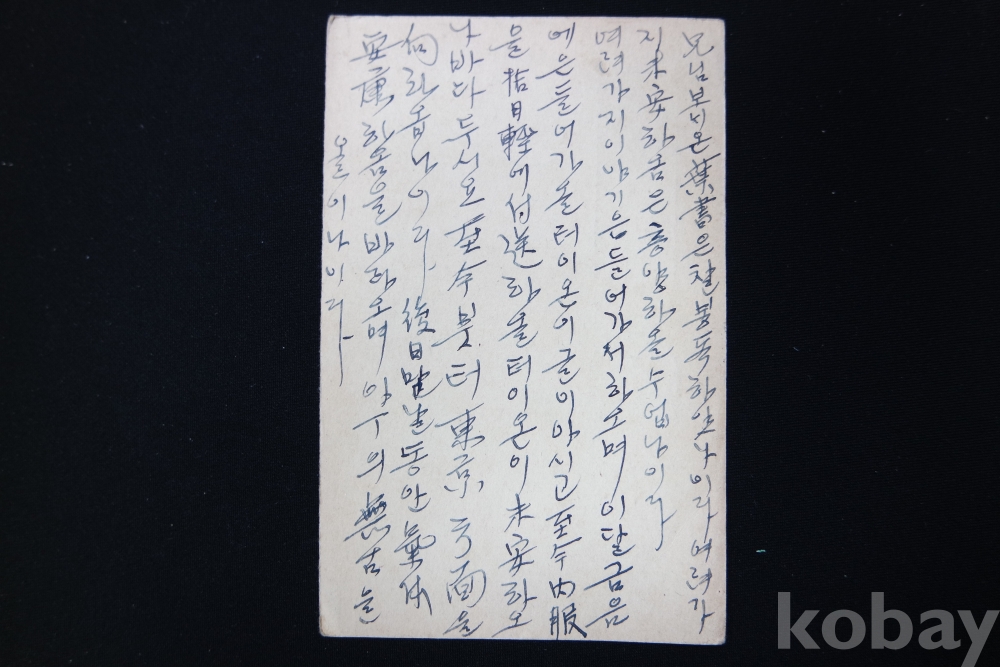 兄님 보시온 葉書은 철봉독하얏나이다 여러가
지 未安하옴은 층양하올 수 업남이다
여러가지 이야기음 들어가저 하오며 이달 금음
에은 들어가올 터이온이 글이 아시고 至今 內服
을 拾日 輕에 付送하올 터이온이 未安하오
나 바다 두시요 至今 붓터 東京 方面을
向하옵나이다 後日 맛날 동안 氣体
安康하옴을 바라오며 아우의 無古을
올이나이다
kobay